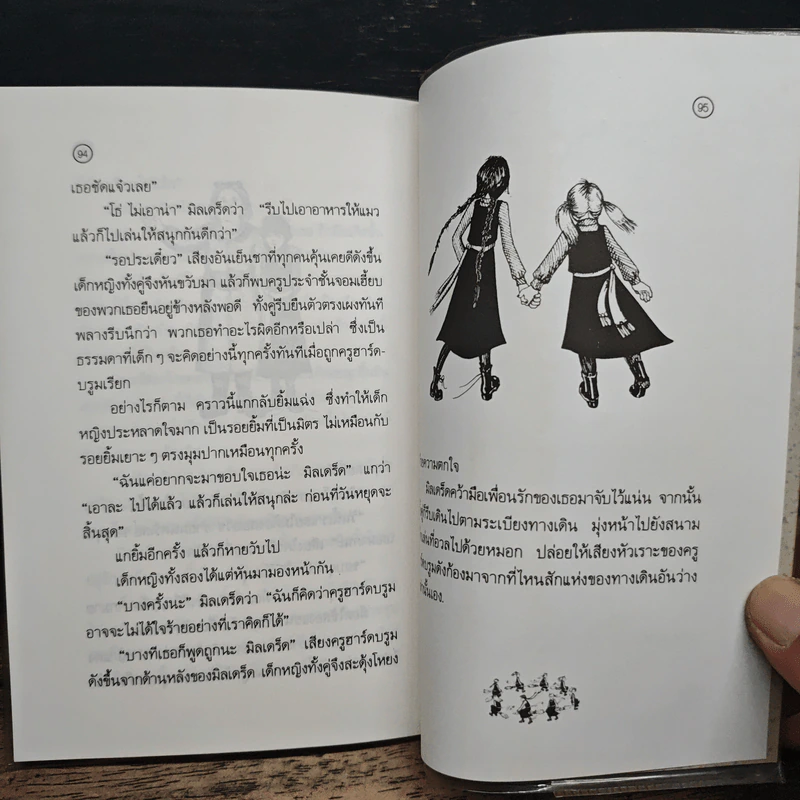 94
เธอชัดแจ๋วเลย”
“โธ่ ไม่เอาน่า” มิลเดร็ดว่า “รีบไปเอาอาหารให้แมว
แล้วก็ไปเล่นให้สนุกกันดีกว่า”
“รอประเดี๋ยว” เสียงอันเย็นชาที่ทุกคนคุ้นเคยดีดังขึ้น
เด็กหญิงทั้งคู่จึงหันขวับมา แล้วก็พบครูประจำชั้นจอมเฮี้ยบ
ของพวกเธอยืนอยู่ข้างหลังพอดี ทั้งคู่รีบยืนตัวตรงเผงทันที
พลางรีบนึกว่า พวกเธอทำอะไรผิดอีกหรือเปล่า ซึ่งเป็น
ธรรมดาที่เด็ก ๆ จะคิดอย่างนี้ทุกครั้งทันทีเมื่อถูกครูฮาร์ด-
บรูมเรียก
อย่างไรก็ตาม คราวนี้แกกลับยิ้มแฉ่ง ซึ่งทำให้เด็ก
หญิงประหลาดใจมาก เป็นรอยยิ้มที่เป็นมิตร ไม่เหมือนกับ
รอยยิ้มเยาะ ๆ ตรงมุมปากเหมือนทุกครั้ง
“ฉันแค่อยากจะมาขอบใจเธอน่ะ มิลเดร็ด” แกว่า
“เอาละ ไปได้แล้ว แล้วก็เล่นให้สนุกล่ะ ก่อนที่วันหยุดจะ
สิ้นสุด”
แกยิ้มอีกครั้ง แล้วก็หายวับไป
เด็กหญิงทั้งสองได้แต่หันมามองหน้ากัน
“บางครั้งนะ” มิลเดร็ดว่า “ฉันก็คิดว่าครูฮาร์ดบรูม
อาจจะไม่ได้ใจร้ายอย่างที่เราคิดก็ได้”
“บางทีเธอก็พูดถูกนะ มิลเดร็ด” เสียงครูฮาร์ดบรูม
ดังขึ้นจากด้านหลังของมิลเดร็ด เด็กหญิงทั้งคู่จึงสะดุ้งโหยง
95
ความตกใจ
มิลเดร็ดคว้ามือเพื่อนรักของเธอมาจับไว้แน่น จากนั้น
รีบเดินไปตามระเบียงทางเดิน มุ่งหน้าไปยังสนาม
เล่นที่อวลไปด้วยหมอก ปล่อยให้เสียงหัวเราะของครู
ดังก้องมาจากที่ไหนสักแห่งของทางเดินอันว่าง
นั้นเอง.